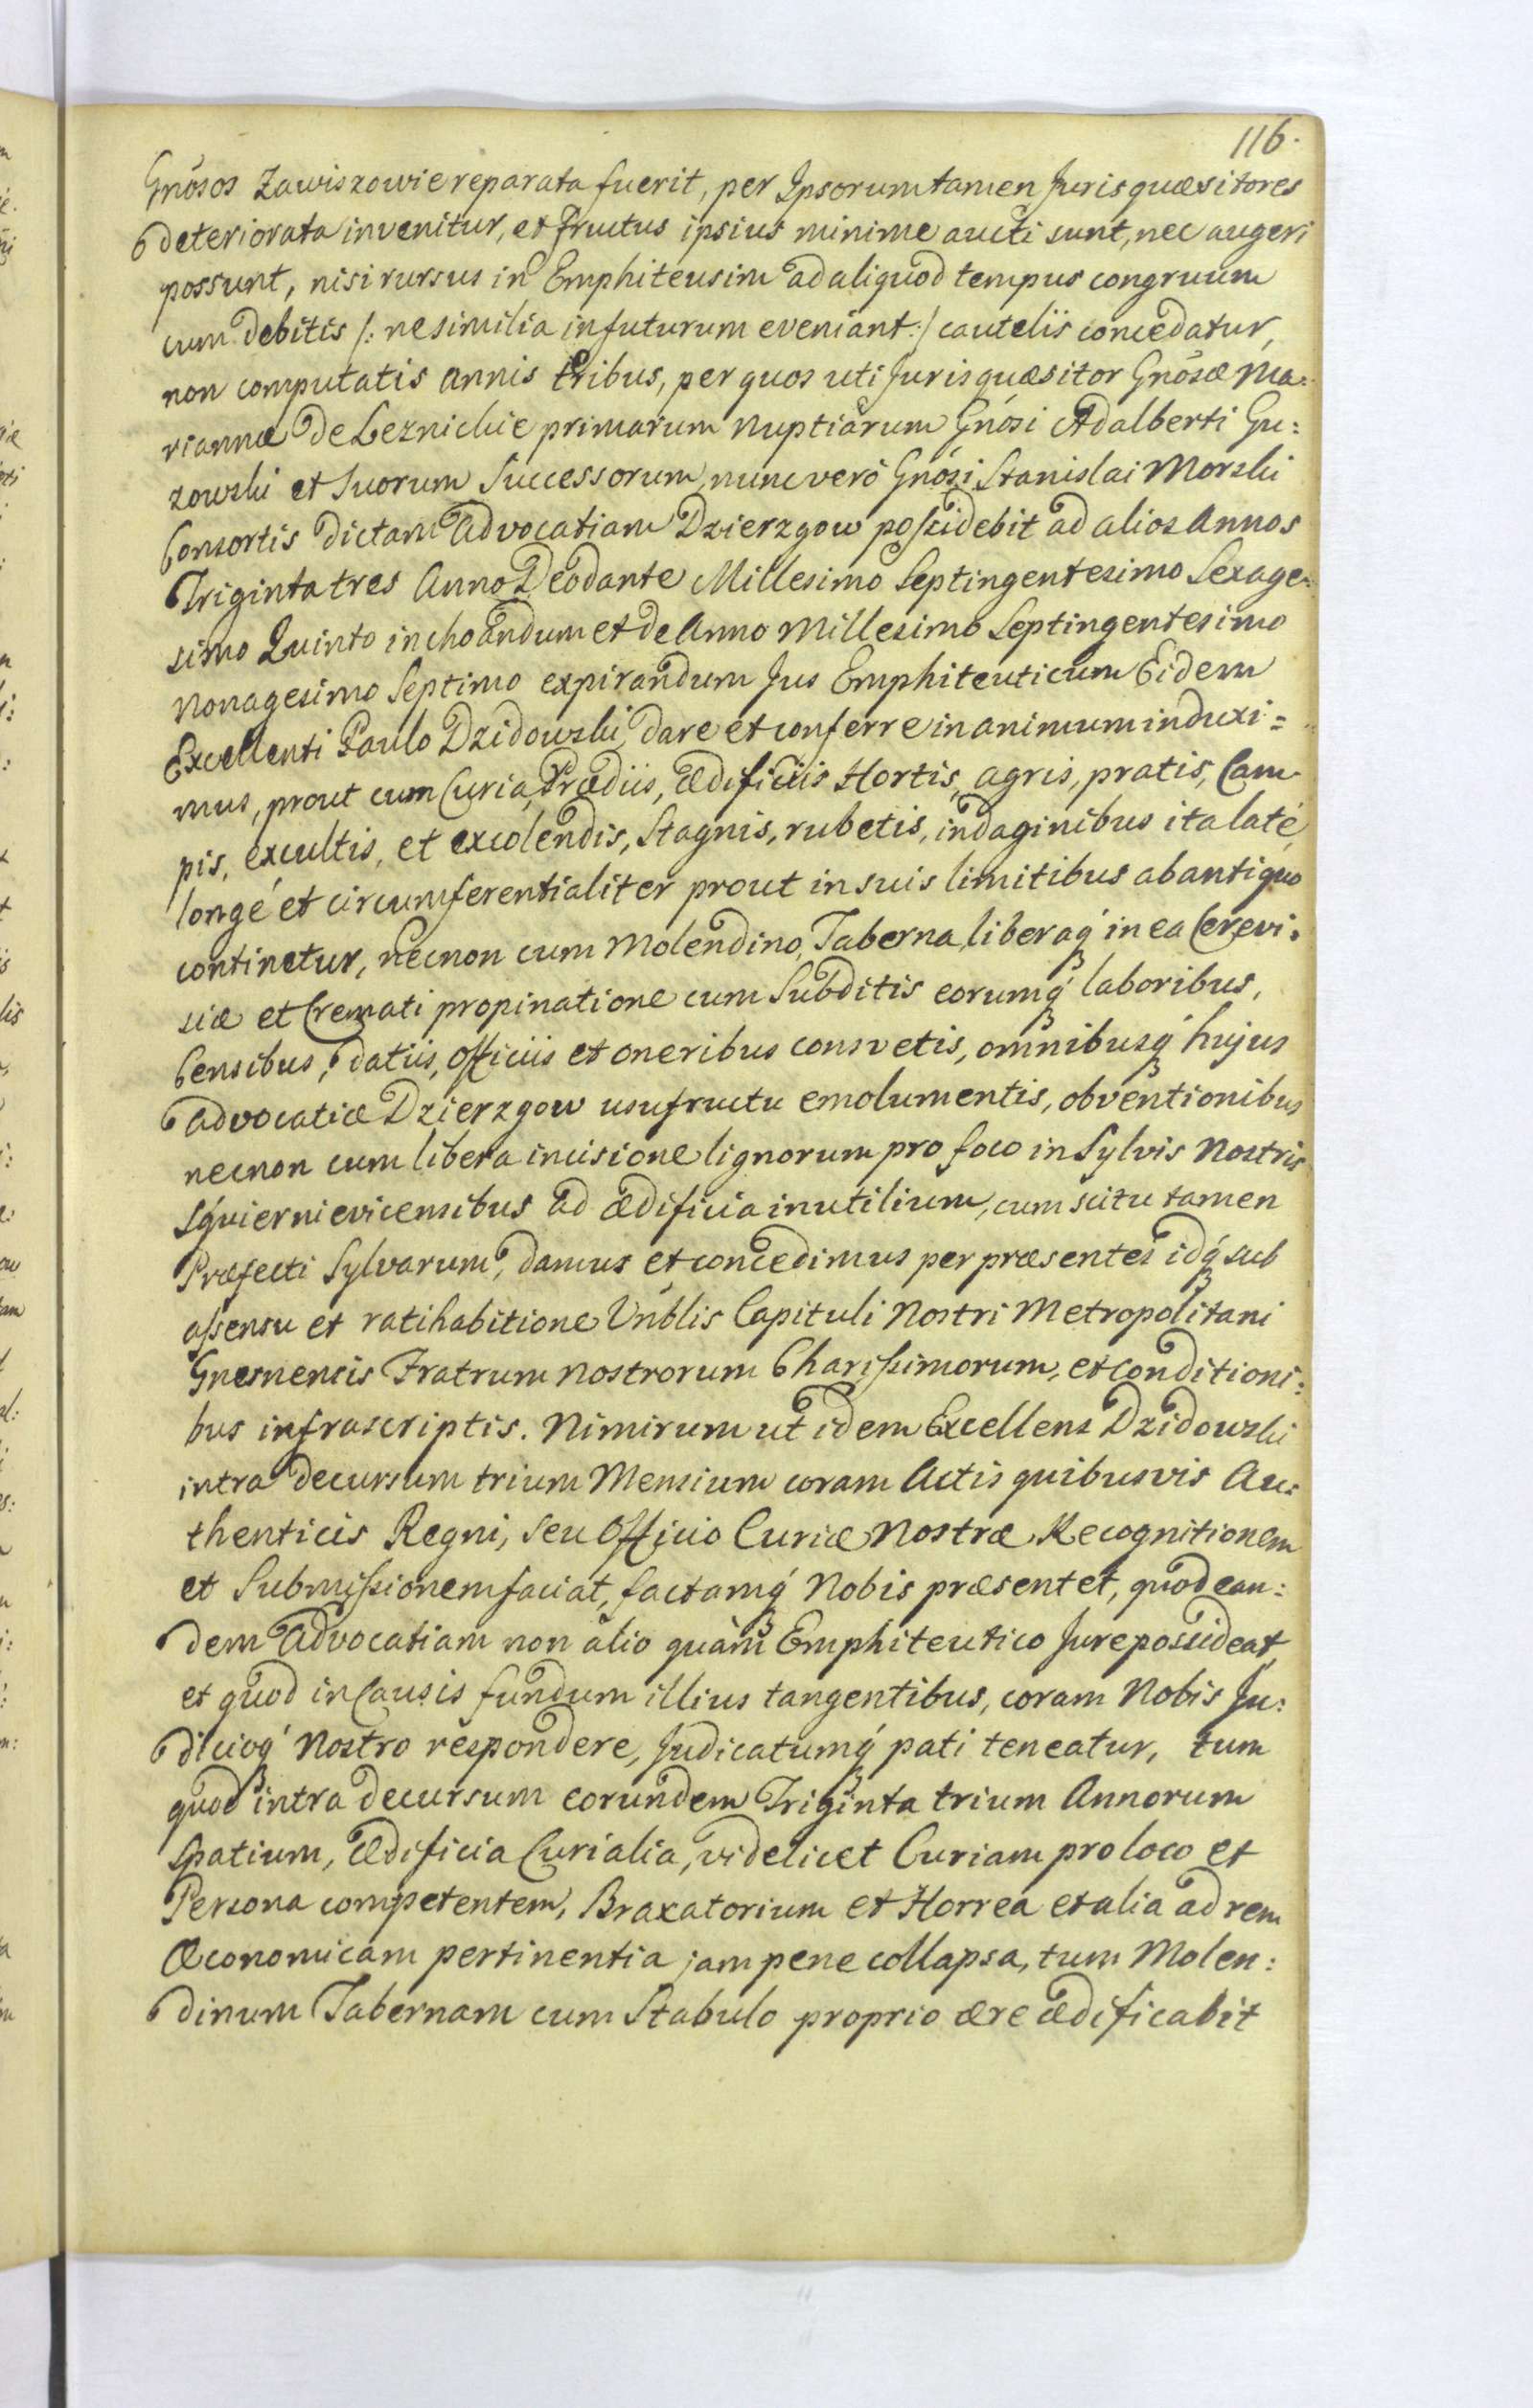 116.
Gnosos Zawiszowie reparata fuerit, per Ipsorum tamen Juris quæsitores
deteriorata invenitur, et fructus ipsius minime aucti sunt, nec augeri
possunt, nisi rursus in Emphiteusim ad aliquod tempus congruum
cum debitis /: ne similia in futurum eveniant :/ cautelis concedatur,
non computatis annis tribus, per quos uti Juris quæsitor Gnosæ Ma:
riannæ de Leznickie primarum nuptiarum Gnosi Adalberti Gu:
zowski et Suorum Successorum, nunc verò Gnosi Stanislai Morski
Consortis dictam Advocatiam Dzierzgow possidebit ad alios Annos
Triginta tres Anno Deo dante Millesimo Septingentesimo Sexage:
simo Quinto inchoandum et de Anno Millesimo Septingentesimo
Nonagesimo Septimo expirandum Jus Emphiteuticum Eidem
Excellenti Paulo Dzidowski dare et conferre in animum induxi=
mus, prout cum Curia, Prædiis, ædificiis Hortis, agris, pratis, Cam
pis, excultis, et excolendis, Stagnis, rubetis, indaginibus ita laté,
longé et circumferentialiter prout in suis limitibus ab antiquo
continetur, necnon cum Molendino, Taberna, liberaq́ in ea Cerevi:
siæ et Cremati propinatione cum Subditis eorumq́ laboribus,
Censibus, datiis, officiis et oneribus consvetis, omnibusq́ hujus
Advocatiæ Dzierzgow usufructu emolumentis, obventionibus
necnon cum libera incisione lignorum pro foco in Sylvis Nostris
Squiernievicensibus ad ædificia inutilium, cum scitu tamen
Præfecti Sylvarum, damus et concedimus per præsentes idq́ sub
assensu et ratihabitione Vnblis Capituli Nostri Metropolitani
Gnesnensis Fratrum Nostrorum Charissimorum, et conditioni:
bus infrascriptis. Nimirum ut idem Excellens Dzidowski
intra decursum trium Mensium coram Actis quibusvis Au:
thenticis Regni, seu Officio Curiæ Nostræ Recognitionem
et Submissionem faciat, factamq́ Nobis præsentet, quod ean:
dem Advocatiam non alio quàm Emphiteutico Jure possideat,
et quod in Causis fundum illius tangentibus, coram Nobis Ju:
dicioq́ Nostro respondere, Judicatumq́ pati teneatur, tum
quod intra decursum eorundem Triginta trium Annorum
spatium, ædificia Curialia, videlicet Curiam pro loco et
Persona competentem, Braxatorium et Horrea et alia ad rem
Œconomicam pertinentia jam pene collapsa, tum Molen:
dinum Tabernam cum Stabulo proprio ære ædificabit